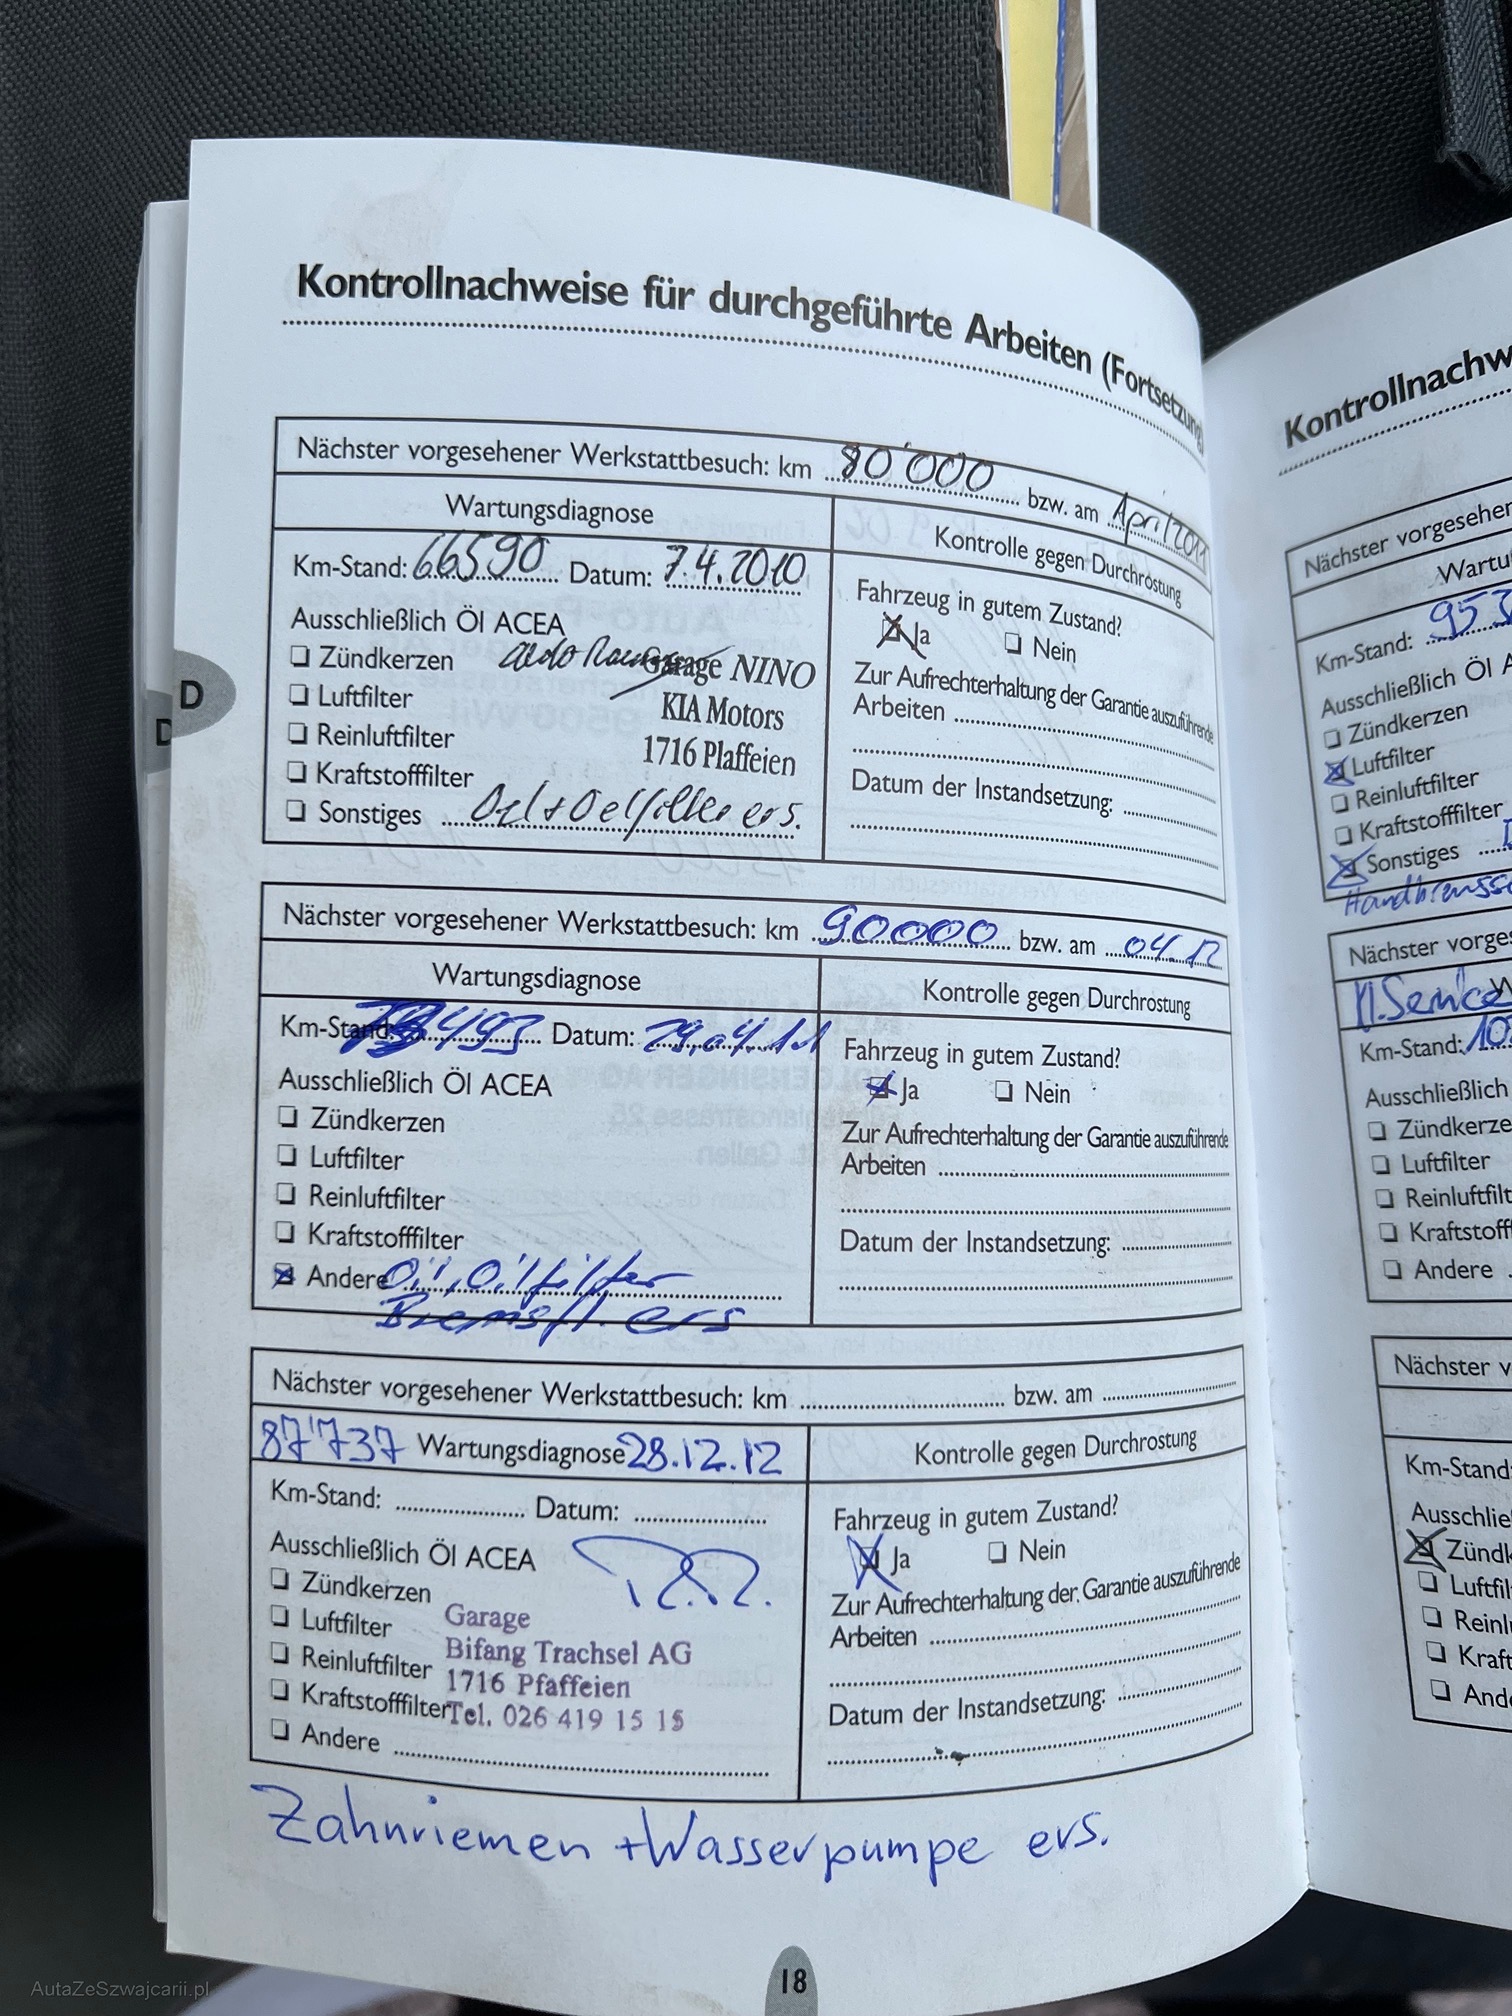 Kontrollnachweise für durchgeführte Arbeiten (Fortsetzung)
Nächster vorgesehener Werkstattbesuch: km 80'000 bzw. am April 2011
Wartungsdiagnose
Kontrolle gegen Durchrostung
Km-Stand: 66590 Datum: 7.4.2010
Ausschließlich Öl ACEA
Zündkerzen
Luftfilter
Reinluftfilter
Kraftstofffilter
Sonstiges Oel + Oelfilter ers.
Garage NINO
KIA Motors
1716 Plaffeien
Fahrzeug in gutem Zustand?
Ja Nein
Zur Aufrechterhaltung der Garantie auszuführende
Arbeiten
Datum der Instandsetzung:
Nächster vorgesehener Werkstattbesuch: km 90000 bzw. am 04.12
Wartungsdiagnose
Kontrolle gegen Durchrostung
Km-Stand: Datum: 29.04.11
Ausschließlich Öl ACEA
Zündkerzen
Luftfilter
Reinluftfilter
Kraftstofffilter
Andere Öil, Oilfilter
Bremsfl. ers
Fahrzeug in gutem Zustand?
Ja Nein
Zur Aufrechterhaltung der Garantie auszuführende
Arbeiten
Datum der Instandsetzung:
Nächster vorgesehener Werkstattbesuch: km bzw. am
87'737 Wartungsdiagnose 28.12.12
Kontrolle gegen Durchrostung
Km-Stand: Datum:
Ausschließlich Öl ACEA
Zündkerzen
Luftfilter
Reinluftfilter
Kraftstofffilter
Andere
Garage
Bifang Trachsel AG
1716 Pfaffeien
Tel. 026 419 15 15
Fahrzeug in gutem Zustand?
Ja Nein
Zur Aufrechterhaltung der Garantie auszuführende
Arbeiten
Datum der Instandsetzung:
Zahnriemen + Wasserpumpe ers.
18
D
D
Kontrollnachw
Nächster vorgesehener
Wartu
Km-Stand: 953
Ausschließlich Öl A
Zündkerzen
Luftfilter
Reinluftfilter
Kraftstofffilter
Sonstiges
Handbremss
Nächster vorges
Service W
Km-Stand: 10
Ausschließlich
Zündkerze
Luftfilter
Reinluftfilt
Kraftstoff
Andere
Nächster v
Km-Stand:
Ausschließlie
Zündk
Luftfil
Reinlu
Kraft
Ande
AutaZeSzwajcarii.pl